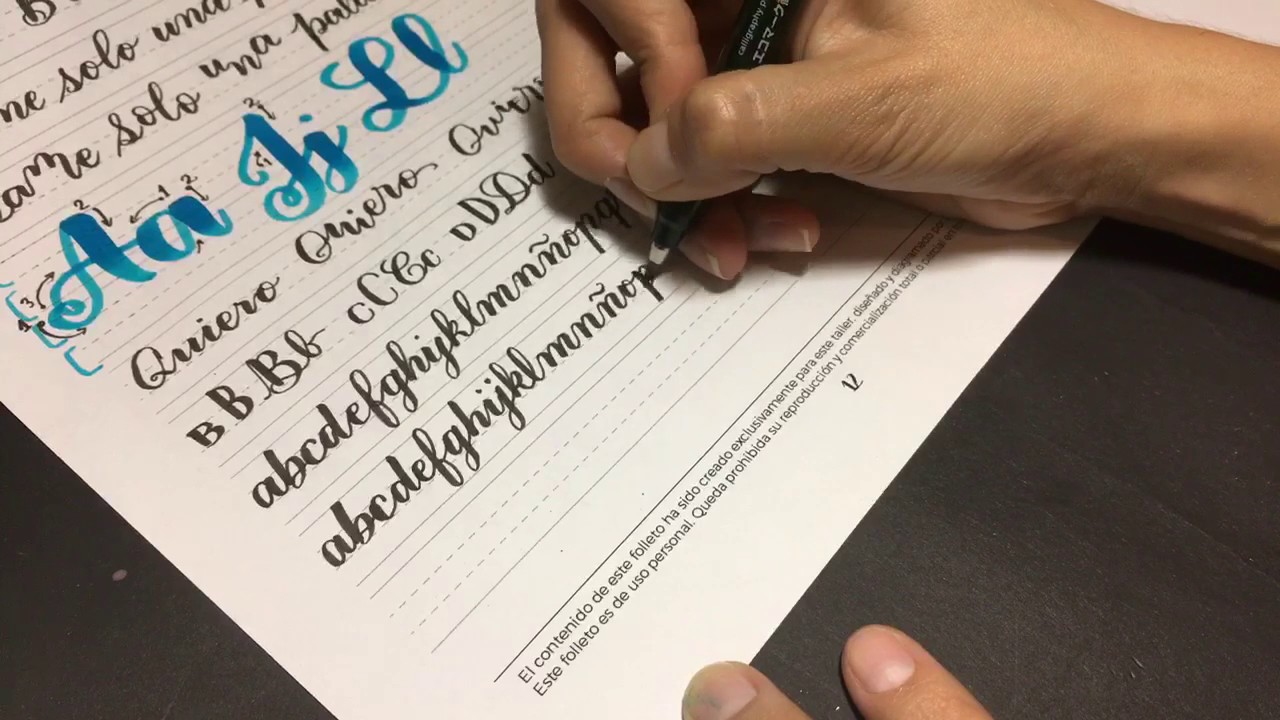 B
me solo una
same solo una pala
Aa Jj Ll
1 2 3
1 2
2
Quiero Quiero Quiero
B B B Bb c C C c D D D d
abcdefghijklmnñopq
abcdefghijklmnñop
El contenido de este folleto ha sido creado exclusivamente para este taller, diseñado y diagramado por
Este folleto es de uso personal. Queda prohibida su reproducción y comercialización total o parcial en
12
calligraphy p
エコマーク